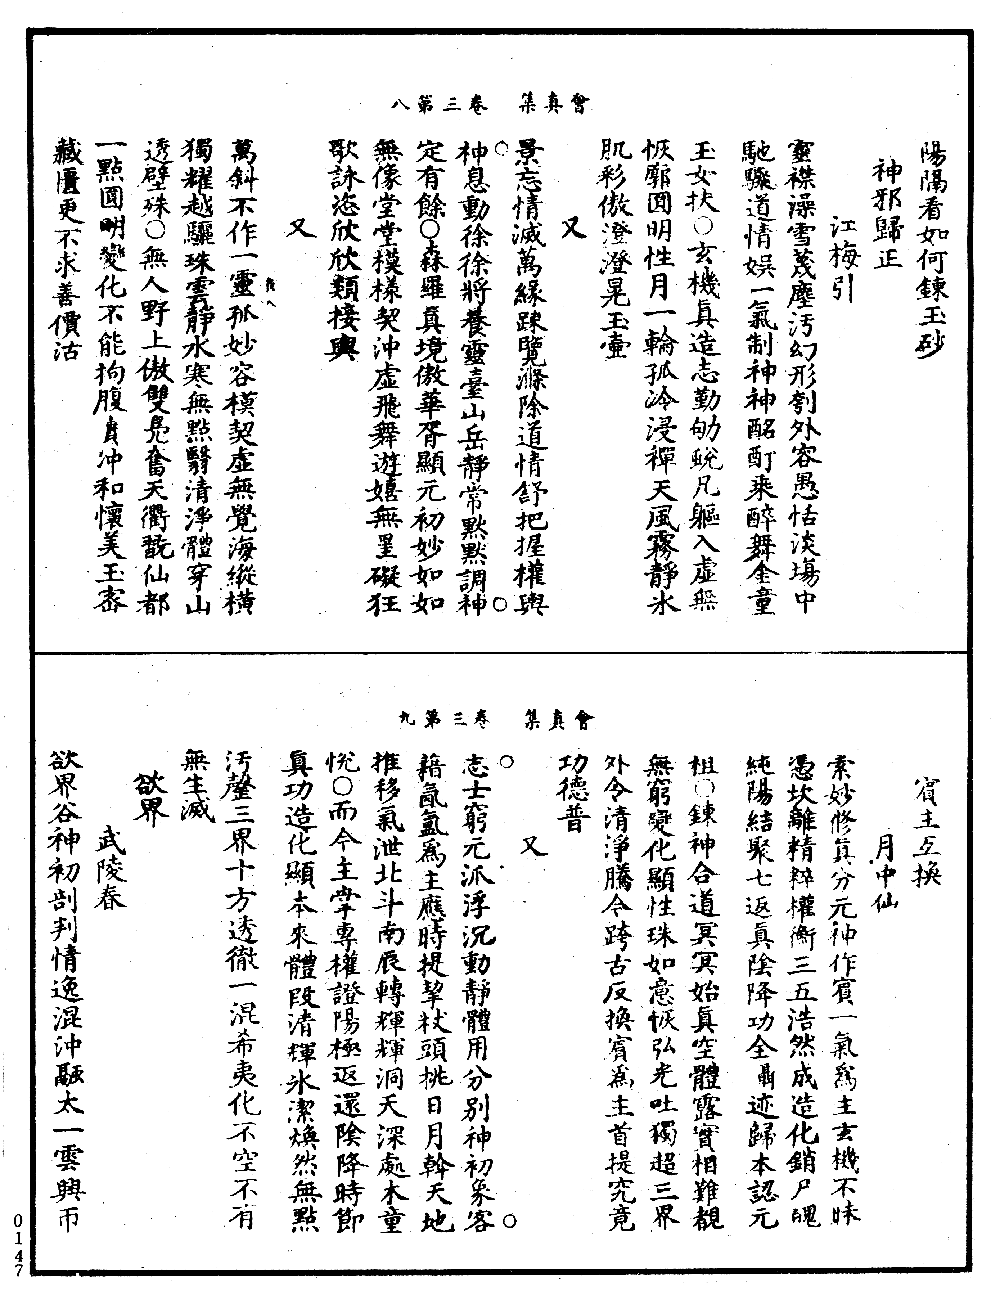 會真集　卷三第八
陽陽看如何鍊玉砂
神邪歸正
江梅引
靈襟澡雪蔑塵汚幻形刳外容愚恬淡塲中
馳驟道情娛一氣制神神酩酊乘醉舞金童
玉女扶○玄機真造志勤劬蛻凡軀入虛無
恢廓圓明性月一輪孤冷浸禪天風霧靜氷
肌彩傲澄澄晃玉壺
又
景忘情滅萬緣踈覽滌除道情舒把握權輿
神息動徐徐將養靈臺山岳靜常默默調神
定有餘○森羅真境傲華胥顯元初妙如如
無像堂堂模樣契沖虛飛舞遊嬉無罣礙狂
歌詠恣欣欣類接輿
又
萬斜不作一靈孤妙容模契虛無覺海縱橫
獨耀越驪珠雲靜水寒無點翳清淨體穿山
透壁殊○無人野上傲雙鳧奮天衢翫仙都
一點圓明變化不能拘腹實冲和懷美玉密
藏匵更不求善價沽
會真集　卷三第九
賓主互換
月中仙
素妙修真分元神作賓一氣為主玄機不昧
憑坎離精粹權衡三五浩然成造化銷尸魄
純陽結聚七返真陰降功全黜迹歸本認元
祖○鍊神合道冥冥始真空體露實相難覩
無窮變化顯性珠如意恢弘光吐獨超三界
外令清淨騰今跨古反換賓為主首提究竟
功德普
又
志士窮元派浮沉動靜體用分別神初象客
藉氤氳為主應時提挈杖頭桃日月斡天地
推移氣泄北斗南辰轉輝輝洞天深處木童
悅○而今主掌專權證陽極返還陰降時節
真功造化顯本來體段清輝氷潔煥然無點
汚聲三界十方透徹一混希夷化不空不有
無生滅
欲界
武陵春
欲界谷神初剖判情逸混沖融太一雲興帀
0147